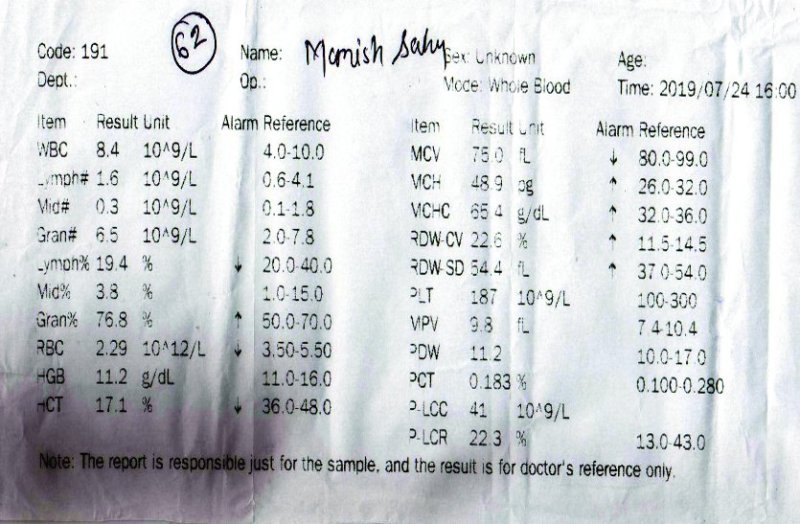 62
Code: 191 Name: Manish Sahu Sex: Unknown Age:
Dept.: Op.: Mode: Whole Blood Time: 2019/07/24 16:00
Item Result Unit Alarm Reference
WBC 8.4 10^9/L 4.0-10.0
Lymph# 1.6 10^9/L 0.6-4.1
Mid# 0.3 10^9/L 0.1-1.8
Gran# 6.5 10^9/L 2.0-7.8
Lymph% 19.4 % ↓ 20.0-40.0
Mid% 3.8 % 1.0-15.0
Gran% 76.8 % ↑ 50.0-70.0
RBC 2.29 10^12/L ↓ 3.50-5.50
HGB 11.2 g/dL 11.0-16.0
HCT 17.1 % ↓ 36.0-48.0
Item Result Unit Alarm Reference
MCV 75.0 fL ↓ 80.0-99.0
MCH 48.9 pg ↑ 26.0-32.0
MCHC 65.4 g/dL ↑ 32.0-36.0
RDW-CV 22.6 % ↑ 11.5-14.5
RDW-SD 54.4 fL ↑ 37.0-54.0
PLT 187 10^9/L 100-300
MPV 9.8 fL 7.4-10.4
PDW 11.2 10.0-17.0
PCT 0.183 % 0.100-0.280
P-LCC 41 10^9/L
P-LCR 22.3 % 13.0-43.0
Note: The report is responsible just for the sample, and the result is for doctor's reference only.